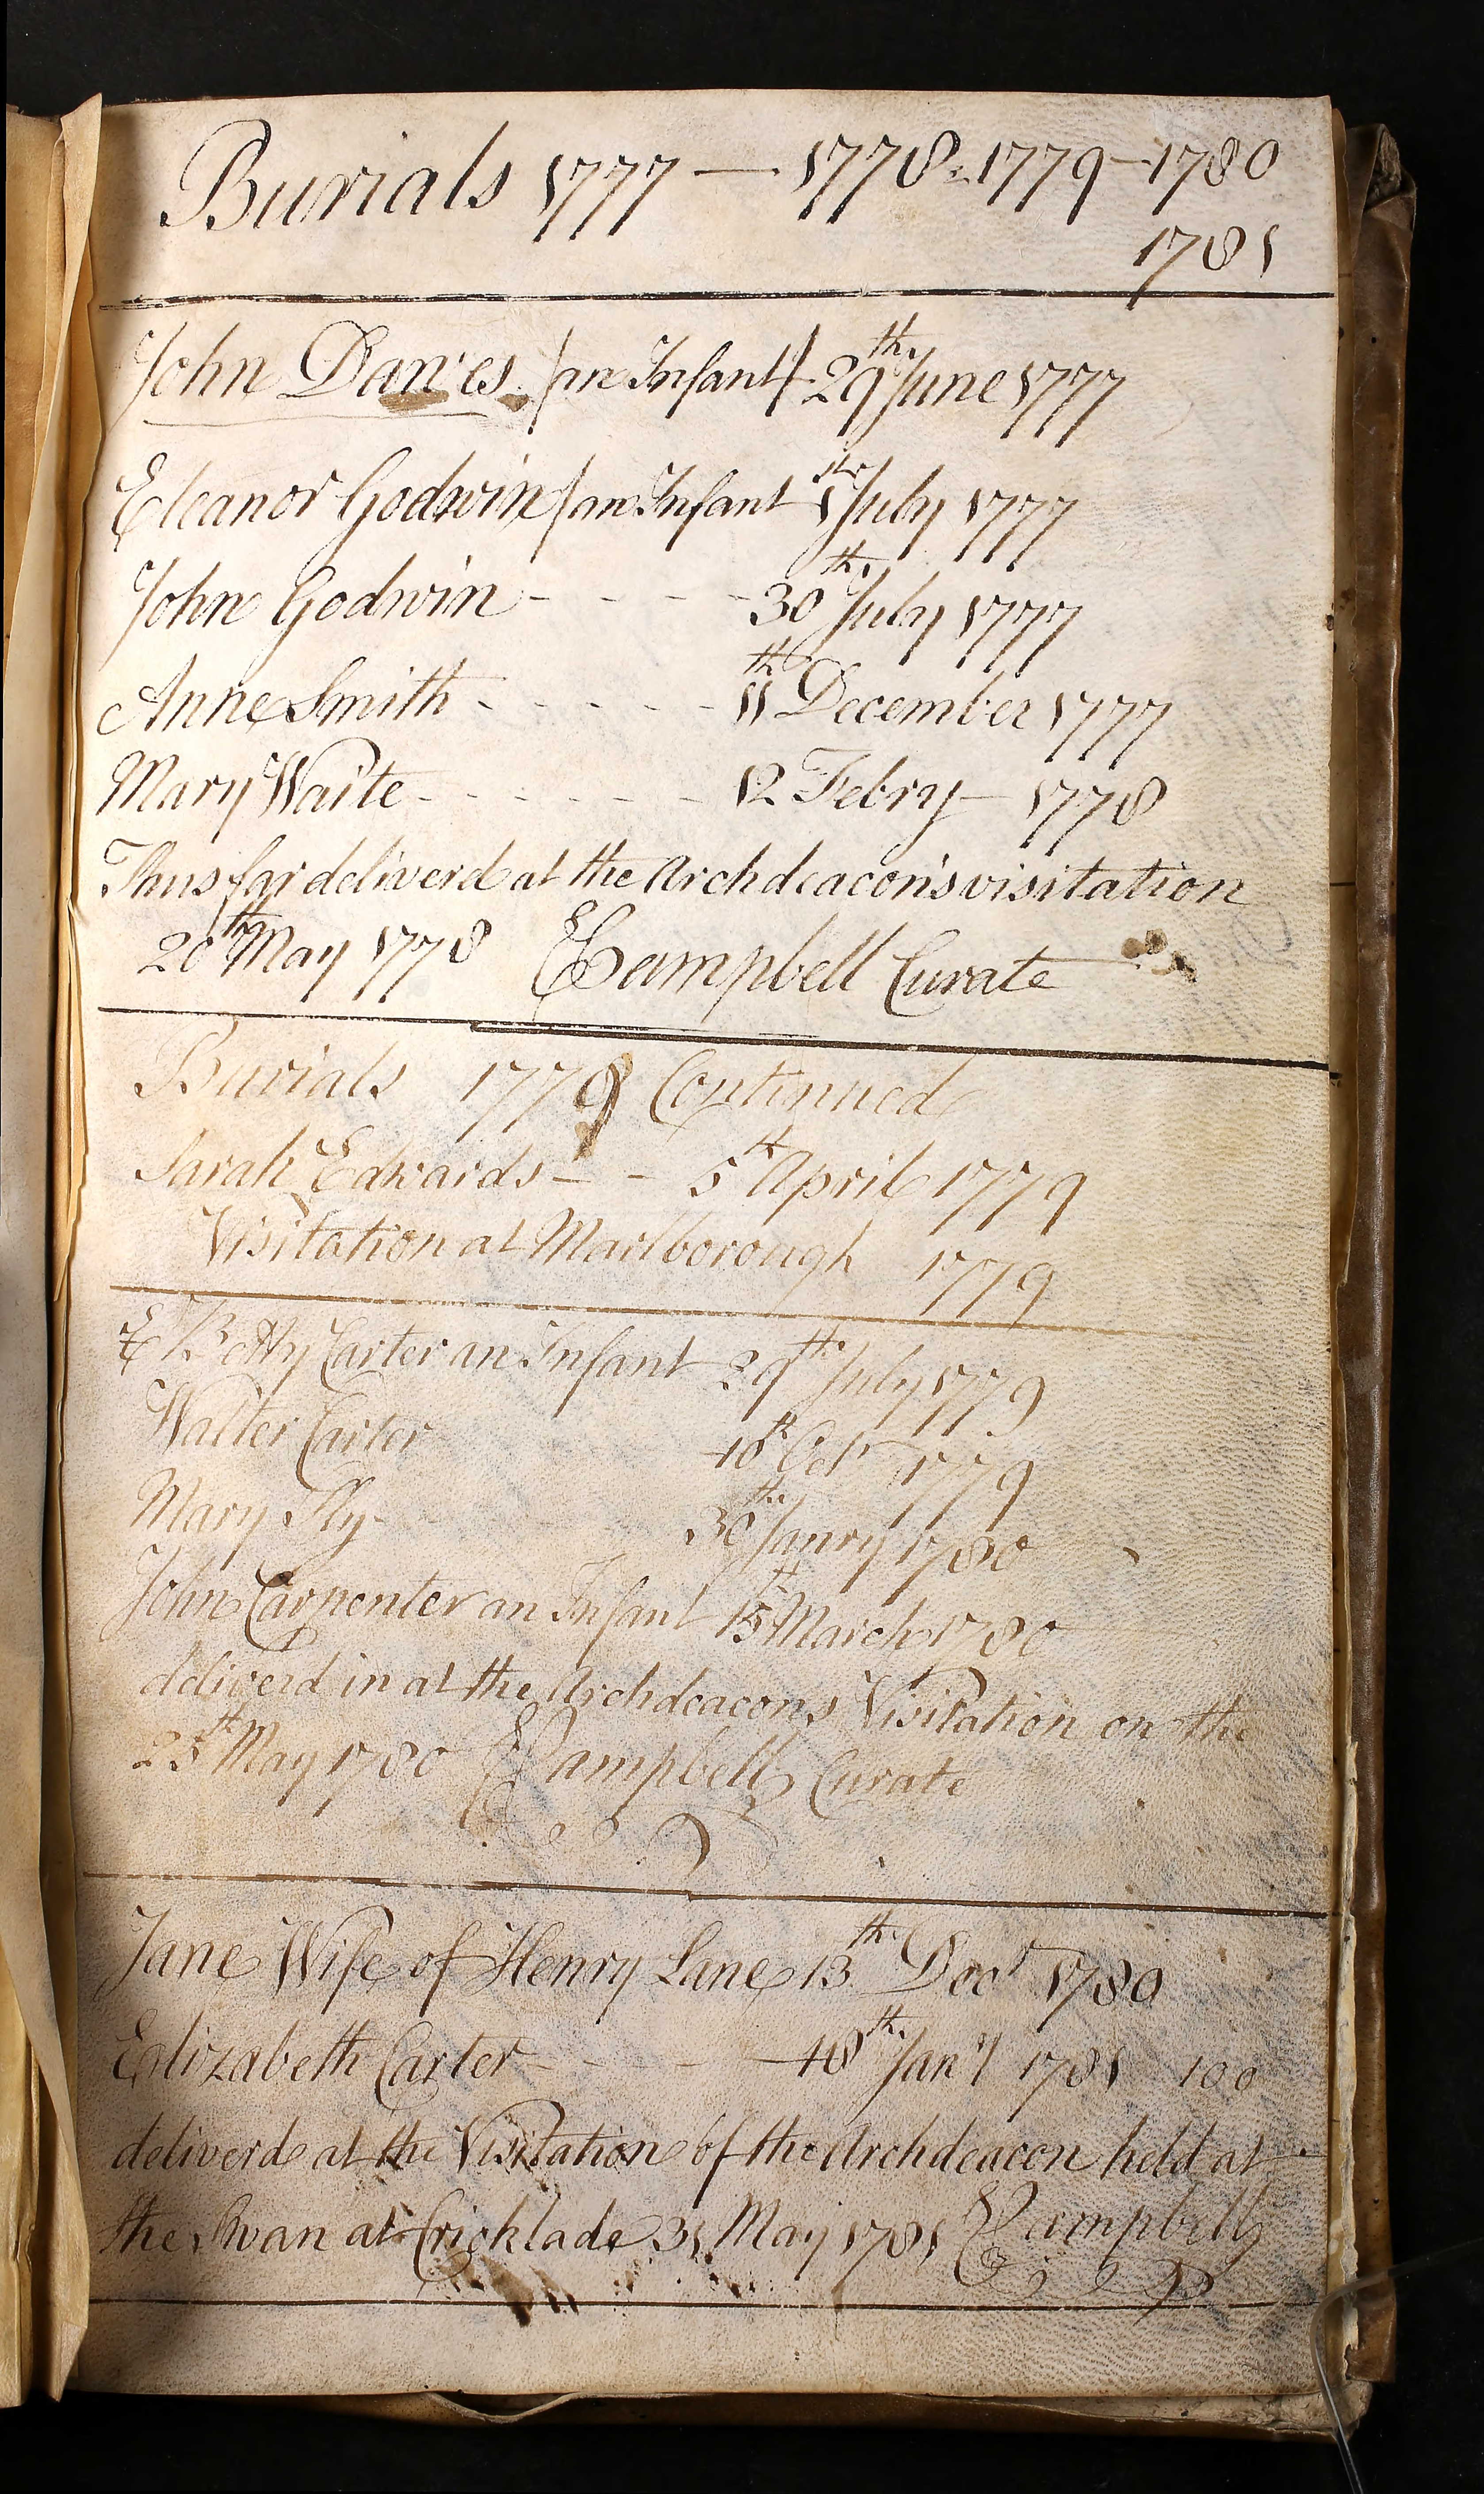 Burials 1777 — 1778 - 1779 - 1780
1781
John Davies (an Infant) 29th June 1777
Eleanor Godwin (an Infant 1st July 1777
John Godwin - - - - 30th July 1777
Anne Smith - - - - - 11th December 1777
Mary Waite - - - - - - 12 Febry - 1778
Thus far deliverd at the Archdeacon's visitation
20th May 1778 ECampbell Curate
Burials 1779 Continued
Sarah Edwards - - 5th April 1779
Visitation at Marlborough 1779
Betty Carter an Infant 29th July 1779
Walter Carter 18th Octr 1779
Mary Sly 30th Janry 1780
John Carpenter an Infant 15th March 1780
deliverd in at the Archdeacons Visitation on the
25th May 1780 ECampbell Curate
Jane Wife of Henry Lane 13th Decr 1780
Elizabeth Carter - - - - 18th Jany 1781 100
deliverd at the Visitation of the Archdeacon held at
the Swan at Cricklade 31 May 1781 ECampbell